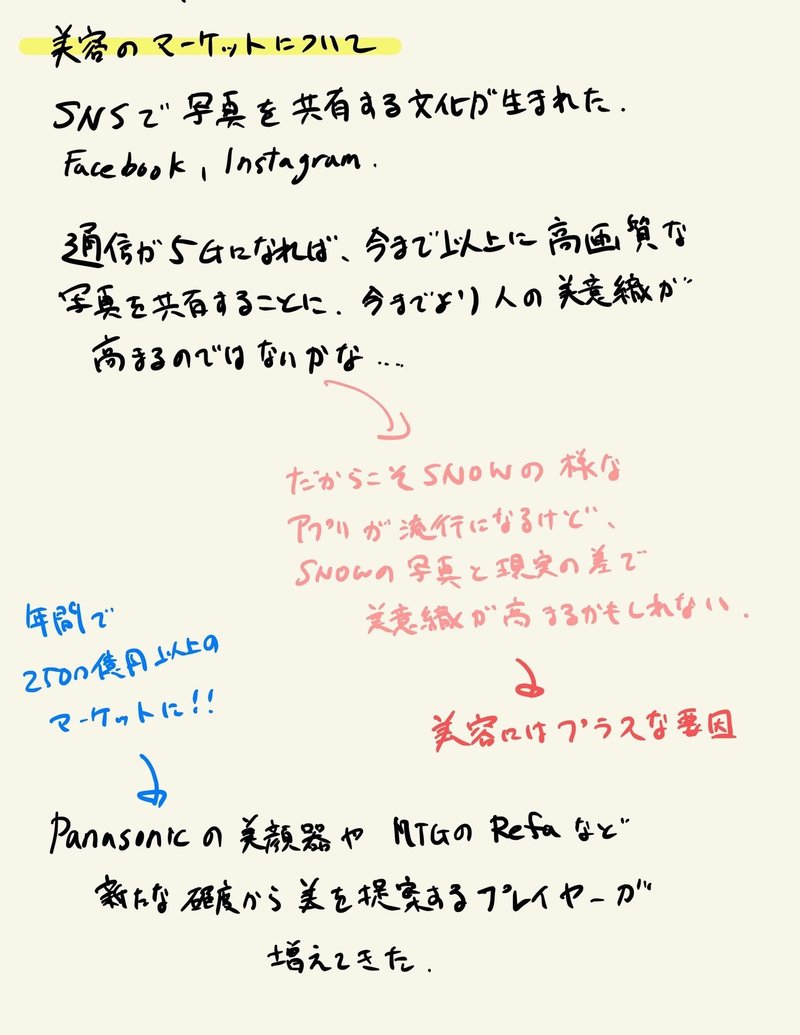 美容のマーケットについて
SNSで写真を共有する文化が生まれた.
Facebook, Instagram.
通信が5Gになれば、今まで以上に高画質な
写真を共有することに. 今までより人の美意識が
高まるのではないかな...
だからこそSNOWの様な
アプリが流行になるけど、
SNOWの写真と現実の差で
美意識が高まるかもしれない.
美容にはプラスな要因
年間で
2500億円以上の
マーケットに!!
Panasonicの美顔器や MTGの Refaなど
新たな確度から美を提案するプレイヤーが
増えてきた.